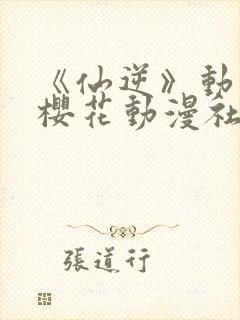 《仙逆》動
櫻花動漫社
張道行